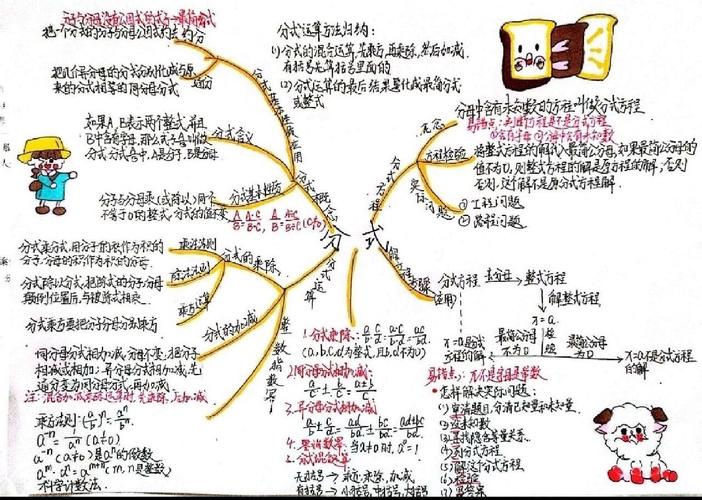 分子与分母没有公因式的式子→最简分式
把一个分式的分子与分母公因式约去 约分
把几个异分母的分式分别化成与原
来的分式相等的同分母分式
通分
如果A、B表示两个整式,并且
B中含有字母,那么式子A/B叫做
分式,分式A/B中,A是分子,B是分母
分式含义
分子与分母乘(或除以)同一个
不等于0的整式,分式的值不变
分式基本性质
A/B=A·C/B·C, A/B=A÷C/B÷C (C≠0)
分式概念
分式运算方法归纳:
(1)分式的混合运算,是先乘方,再乘除,然后加减,
有括号先算括号里面的
(2)分式运算的最后结果要化成最简分式
或整式
分式
分式方程
分母中含有未知数的方程叫做分式方程
易错点:判断方程是不是分式方程
概念
方程检验
将整式方程的解代入最简公分母,如果最简公分母的
值不为0,则整式方程的解是原方程的解,否则
否则,这个解不是原分式方程解.
实际问题
①工程问题
②路程问题
分式运算
分式的乘除
乘法法则
分式乘分式,用分子的积作为积的
分子,分母的积作为积的分母.
除法法则
分式除以分式,把除式的分子,分母
颠倒位置后,与被除式相乘
乘方运算
分式乘方要把分子分母分别乘方
分式的加减
同分母分式相加减,分母不变,把分子
相减或相加;异分母分式相加减,先
通分,变为同分母分式,再加减.
注:混合加减乘除运算时,先乘除,后加减
整数指数幂
乘方法则:(a/b)ⁿ=aⁿ/bⁿ
a⁻ⁿ=1/aⁿ (a≠0)
a⁻ⁿ(a≠0)是aⁿ的倒数
aᵐ·aⁿ=aᵐ⁺ⁿ(m,n是整数)
科学计数法
1.分式乘除:
(a,b,c,d为整式,且b,d不为0)
2.同分母分式相加减:
a/c±b/c=a±b/c
3.异分母分式相加减
当a≠0时,a⁰=1
5.分式混合运算
无括号→乘方,乘除,加减
有括号→小括号,中括号,大括号
解方程步骤
分式方程
去分母
整式方程
解整式方程
x=a
检验
最简公分母
不为0
最简公分母
为0
x=a是分式
方程的解
x=a不是分式方程
的解
怎样解决实际问题:
(1)审清题目,分清已知量和未知量
(2)设未知数
(3)寻找隐含等量关系
(4)列分式方程
(5)解这个分式方程
(6)检验
(7)写答案